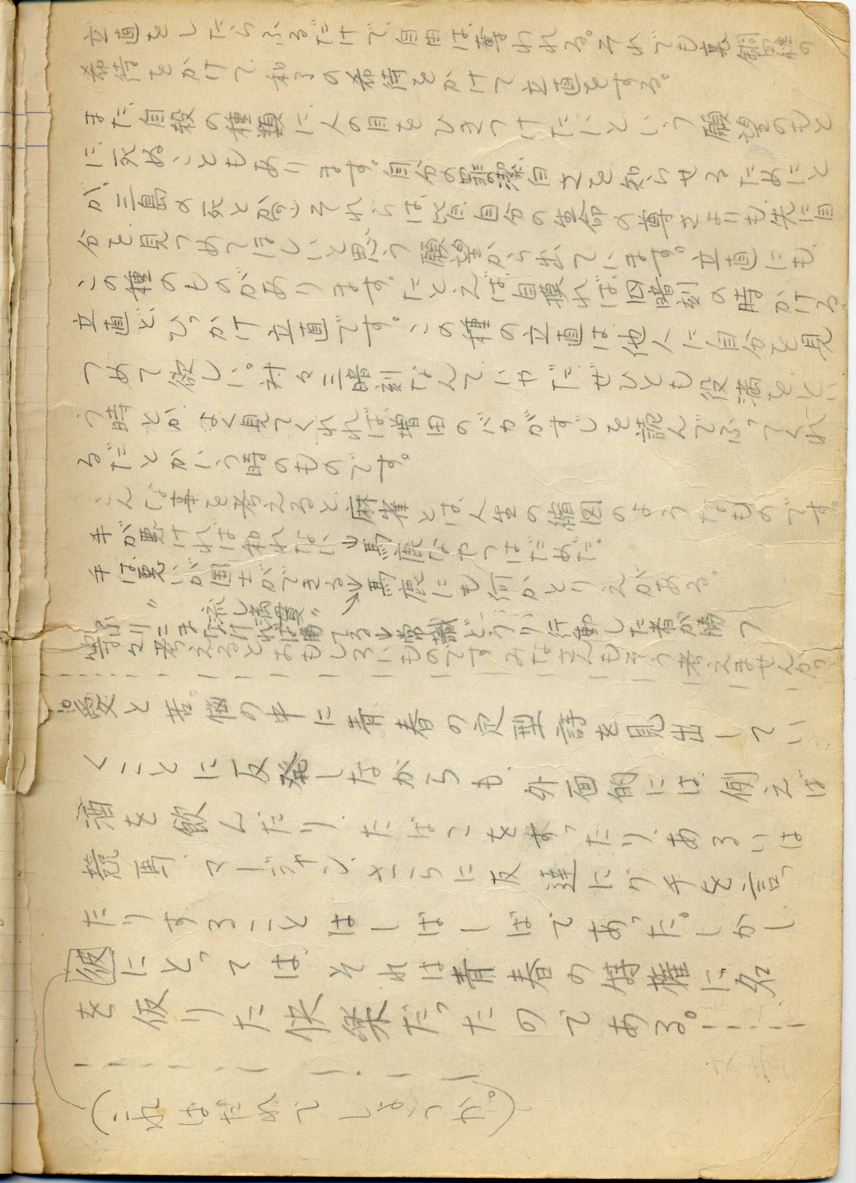 立直をしたらふるだけで、自由は奪われる。それでも裏銅鑼の
希待をかけて、和了の希待をかけて立直をする。
また、自殺の種類に人の目をひきつけたいという願望のもと
に死ぬこともあります。自分の潔白さを知らせるためにと
か、三島の死とか。それらは皆、自分の生命の尊さよりも先に自
分を見つめてほしいと思う願望から出ています。立直にも、
この種のものがあります。たとえば自摸れば四暗刻の時かける
立直とひっかけ立直です。この種の立直は他人に自分を見
つめて欲しい。対々三暗刻なんていやだ、ぜひとも役満をとい
う時とか、よく見てくれれば増田のバカがすじを読んでふってくれ
るだとかいう時のものです。
こんな事を考えると、麻雀とは人生の縮図のようなものです。
手が悪ければ和れない→馬鹿なやつはだめだ。
手は悪いが国士ができる→馬鹿にも何かとりえがある。
〃 流し満貫〃
ふりこまなければ勝てる→常識どうり行動した者が勝つ
等々考えるとおもしろいものです。みなさんもそう考えませんか。
◎愛と苦悩の中に青春の定型詩を見出してい
くことに反発しながらも、外面的には、例えば
酒を飲んだり、たばこをすったり、あるいは
競馬、マージャン、さらに友達にグチを言っ
たりすることはしばしばであった。しかし
彼にとっては、それは青春の特権に名
を仮りた快楽だったのである。
(これはだれでしょうか。)